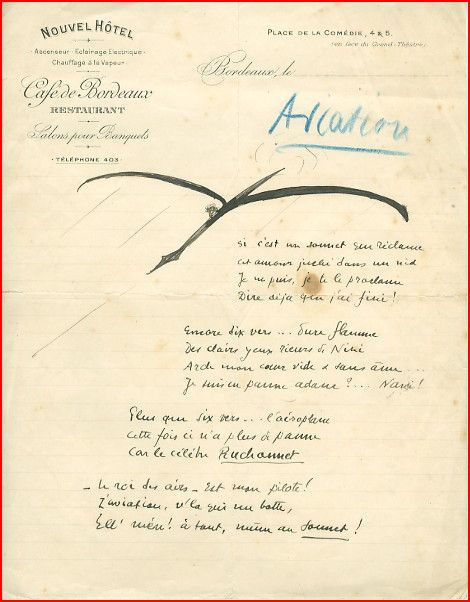 NOUVEL HÔTEL
Ascenseur - Eclairage Electrique -
Chauffage à la Vapeur
Café de Bordeaux
RESTAURANT
Salons pour Banquets
TÉLÉPHONE 403
PLACE DE LA COMÉDIE, 4 & 5.
(en face du Grand-Théâtre)
Bordeaux, le
Aviation
Si c'est un sonnet que réclame
cet amour juché dans un nid
Je ne puis, je te le proclame
Dire déjà que j'ai fini!
Encore dix vers... dure flamme
Des clairs yeux rieurs de Nini
Arde mon cœur vide & sans âme...
Je suis en panne adame?...
Plus que six vers... l'aéroplane
Cette fois ci n'a plus de panne
Car le célèbre Ruchonnet
- Le roi des airs - Est mon pilote!
L'aviation, v'là qui me botte,
Ell' mèn' à tout, même au Sonnet!